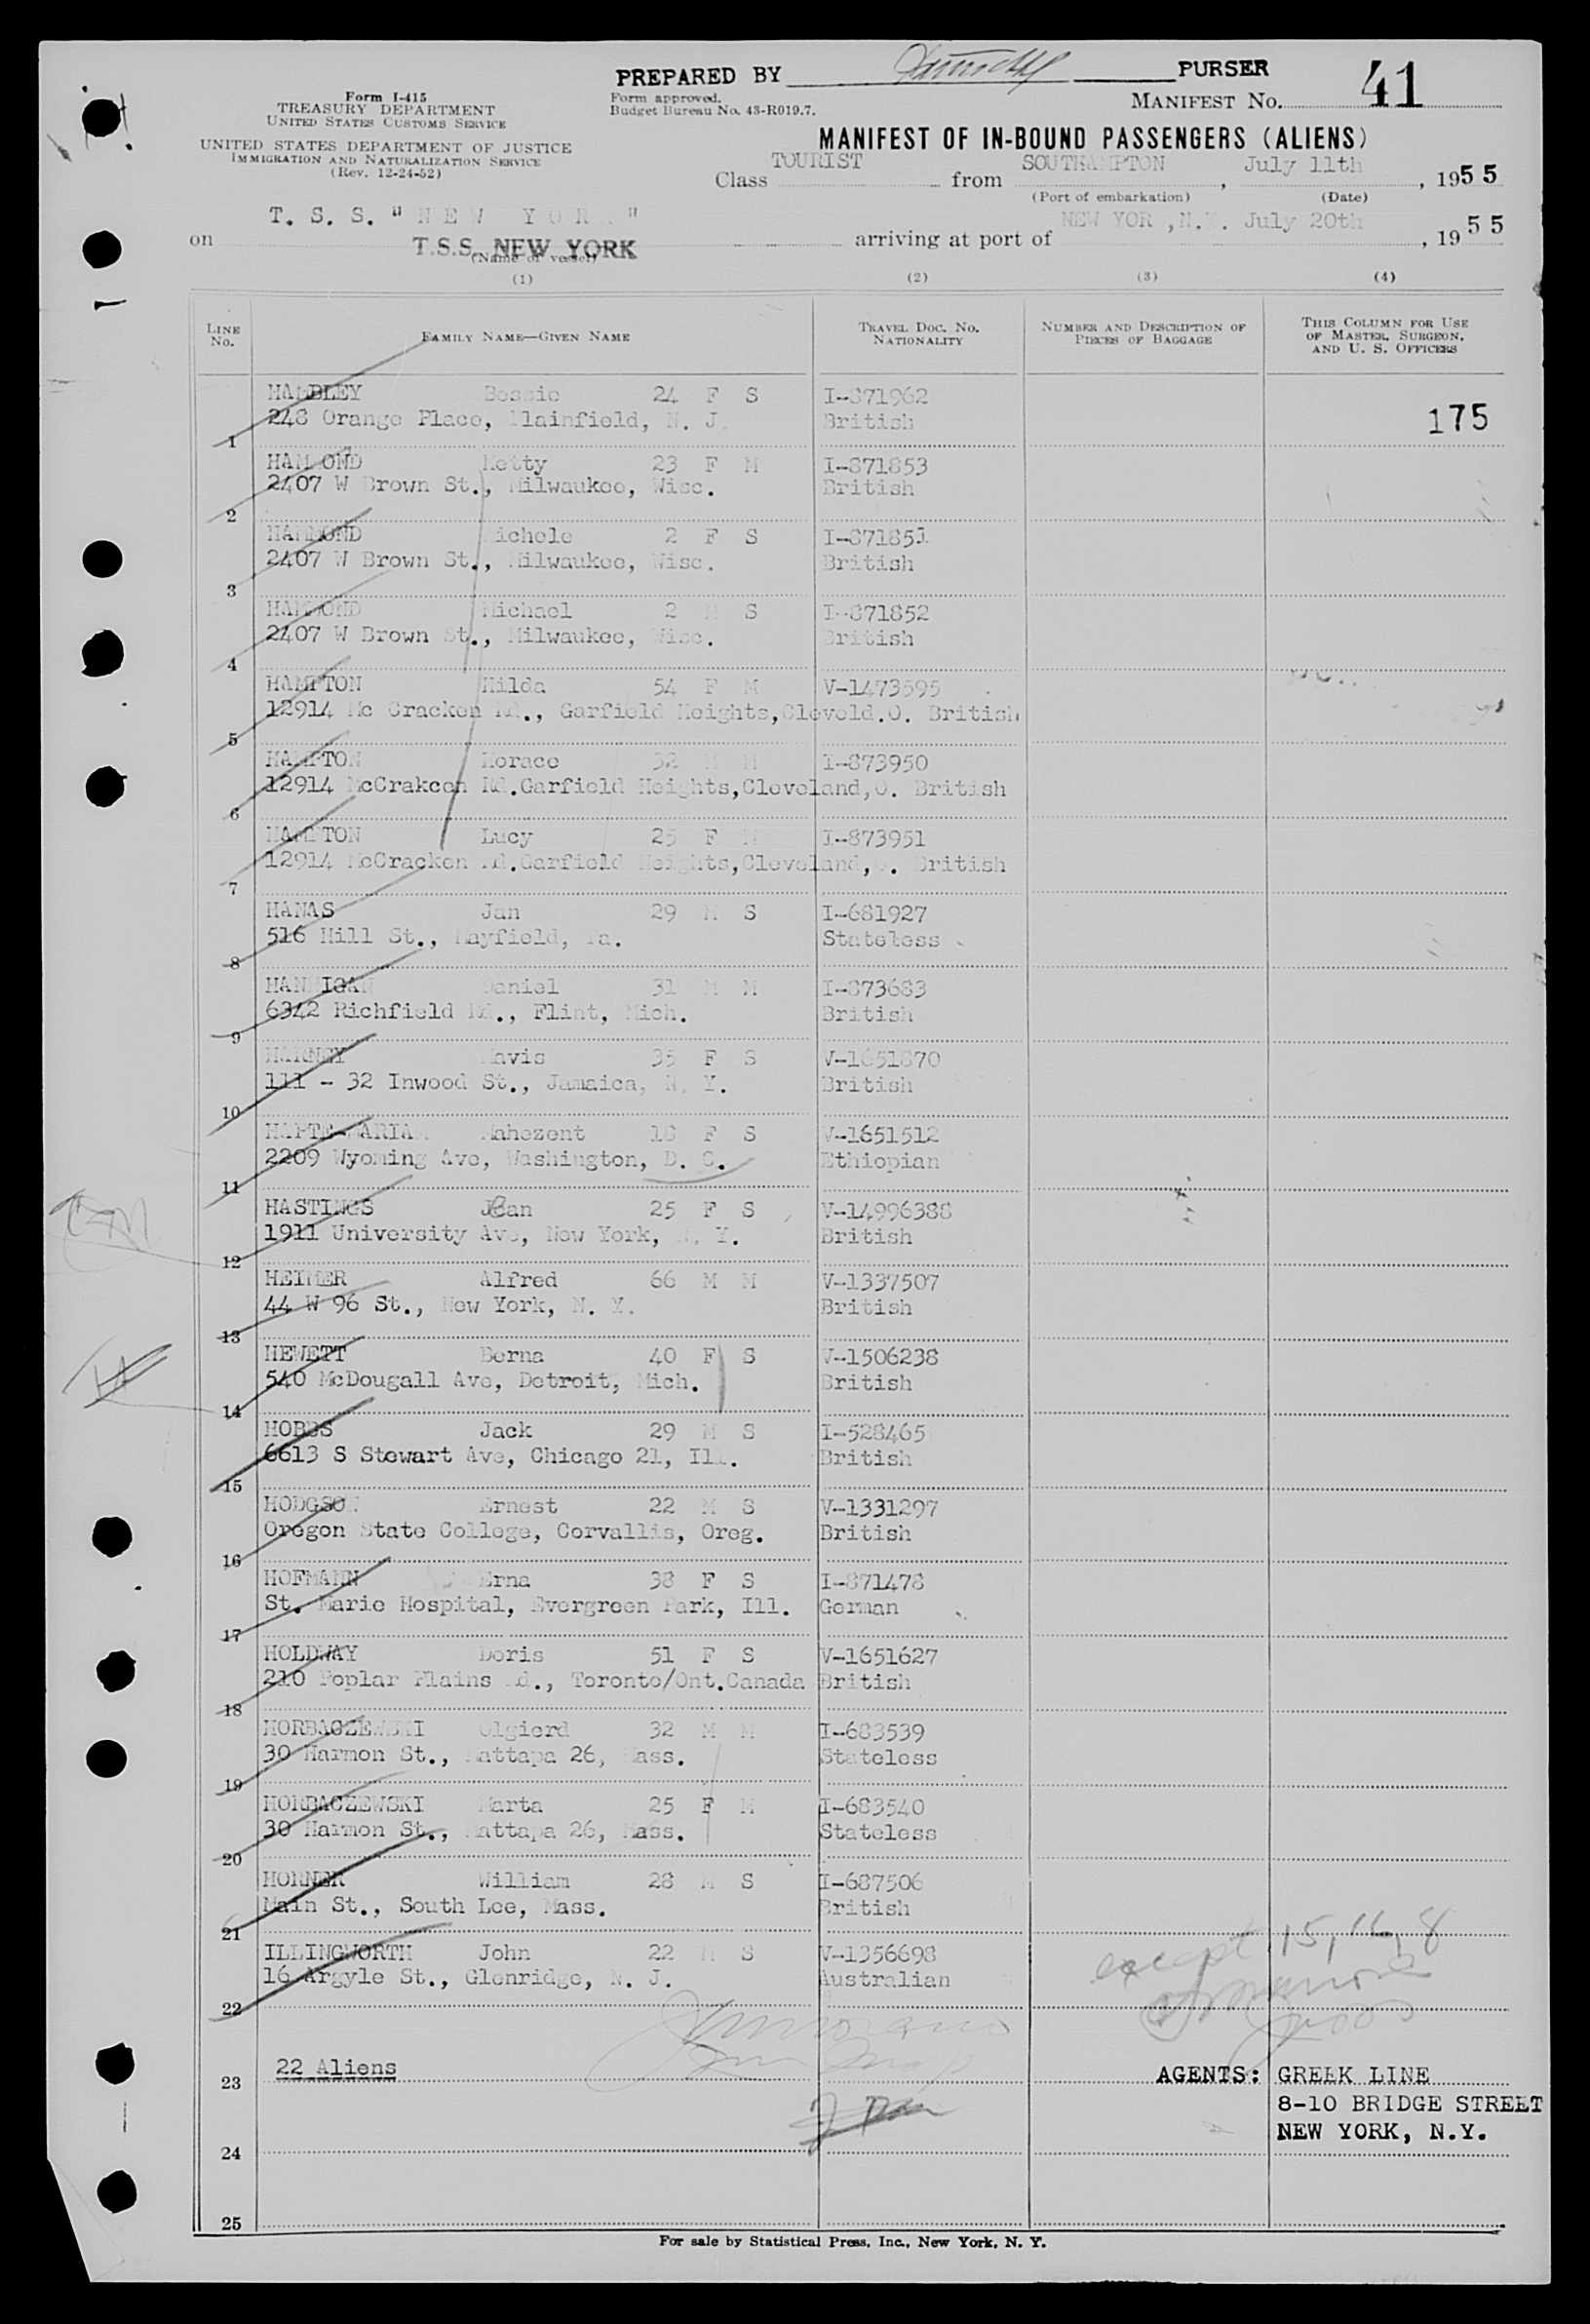 PREPARED BY PURSER
Form I-415
TREASURY DEPARTMENT
UNITED STATES CUSTOMS SERVICE
UNITED STATES DEPARTMENT OF JUSTICE
IMMIGRATION AND NATURALIZATION SERVICE
(Rev. 12-24-52)
Form approved.
Budget Bureau No. 43-R019.7.
MANIFEST NO. 41
MANIFEST OF IN-BOUND PASSENGERS (ALIENS)
Class TOURIST from SOUTHAMPTON, July 11th, 1955
(Port of embarkation) (Date)
T. S. S. "NEW YORK"
on T.S.S. NEW YORK arriving at port of NEW YORK, N.Y. July 20th, 1955
(Name of vessel)
(1) (2) (3) (4)
LINE NO. FAMILY NAME—GIVEN NAME TRAVEL DOC. NO. NATIONALITY NUMBER AND DESCRIPTION OF PIECES OF BAGGAGE THIS COLUMN FOR USE OF MASTER, SURGEON, AND U. S. OFFICERS
Bessie 24 F S I-871962
248 Orange Place, Plainfield, N. J. British 175
1
HAMMOND Ketty 23 F M I-871853
2407 W Brown St., Milwaukee, Wisc. British
2
HAMMOND Michele 2 F S I-871851
2407 W Brown St., Milwaukee, Wisc. British
3
HAMMOND Michael 2 M S I-871852
2407 W Brown St., Milwaukee, Wisc. British
4
HAMPTON Hilda 54 F M V-1473595
12914 Mc Cracken Rd., Garfield Heights,Cleveld.O. British
5
HAMPTON Horace 32 M M I-873950
12914 McCrakcen Rd.Garfield Heights,Cleveland,O. British
6
HAMPTON Lucy 25 F M I-873951
12914 McCracken Rd.Garfield Heights,Cleveland,O. British
7
HANAS Jan 29 M S I-681927
516 Hill St., Mayfield, Pa. Stateless
8
HANNIGAN Daniel 31 M M I-873683
6342 Richfield Rd., Flint, Mich. British
9
HARNEY Mavis 35 F S V-1651870
111 - 32 Inwood St., Jamaica, N. Y. British
10
HAPTE-MARIAM Mahezent 18 F S V-1651512
2209 Wyoming Ave, Washington, D. C. Ethiopian
11
HASTINGS Jean 25 F S V-14996388
1911 University Ave, New York, N. Y. British
12
HEIMER Alfred 66 M M V-1337507
44 W 96 St., New York, N. Y. British
13
HEWETT Berna 40 F S V-1506238
540 McDougall Ave, Detroit, Mich. British
14
HOBBS Jack 29 M S I-528465
6613 S Stewart Ave, Chicago 21, Ill. British
15
HODGSON Ernest 22 M S V-1331297
Oregon State College, Corvallis, Oreg. British
16
HOFMANN Erna 38 F S I-871478
St. Marie Hospital, Evergreen Park, Ill. German
17
HOLDWAY Doris 51 F S V-1651627
210 Poplar Plains Rd., Toronto/Ont.Canada British
18
HORBACZEWSKI Olgierd 32 M M I-683539
30 Harmon St., Mattapa 26, Mass. Stateless
19
HORBACZEWSKI Marta 25 F M I-683540
30 Harmon St., Mattapa 26, Mass. Stateless
20
HORNER William 28 M S I-687506
Main St., South Lee, Mass. British
21
ILLINGWORTH John 22 M S V-1356698
16 Argyle St., Glenridge, N. J. Australian
22
except 15, 16, 8
22 Aliens
23
AGENTS: GREEK LINE
8-10 BRIDGE STREET
NEW YORK, N.Y.
24
25
For sale by Statistical Press, Inc., New York, N. Y.